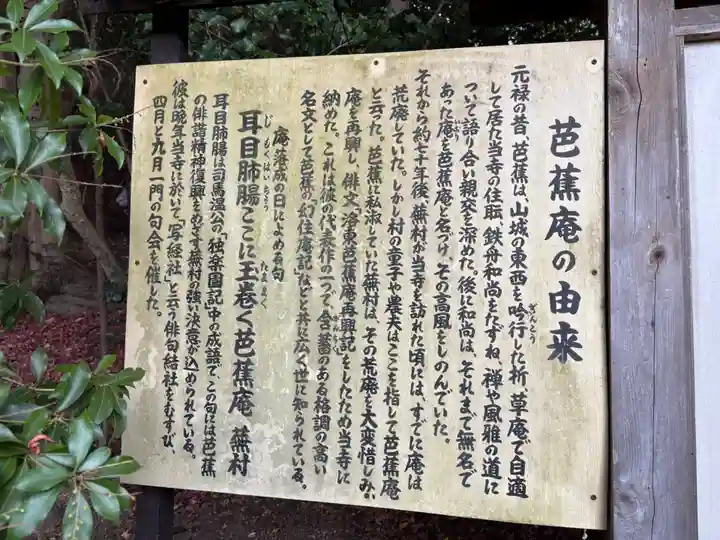 芭蕉庵の由来
元禄の昔、芭蕉は、山城の東西を吟行した折、草庵で自適
ぎんとう
して居た当寺の住職、鉄舟和尚をたずね、禅や風雅の道に
ついて語り合い親交を深めた。後に和尚は、それまで無名で
あった庵を芭蕉庵と名づけ、その高風をしのんでいた。
それから約七十年後、蕪村が当寺を訪れた頃には、すでに庵は
荒廃していた。しかし村の童子や農夫はここを指して芭蕉庵
と云った。芭蕉に私淑していた蕪村は、その荒廃を大変惜しみ、
庵を再興し、俳文、洛東芭蕉庵再興記をしたため当寺に
納めた。これは彼の代表作の一つで、含蓄のある格調の高い
名文として芭蕉の「幻住庵記」などと共に広く世に知られている。
庵落成の日によめる句
耳目肺腸ここに玉巻く芭蕉庵 蕪村
じもくはいちょう たままく
耳目肺腸は司馬温公の「独楽園記」中の成語で、この句には芭蕉
の俳諧精神復興をめざす蕪村の強い決意が込められている。
彼は晩年当寺に於いて「写経社」と云う俳句結社をむすび、
四月と九月一門の句会を催した。